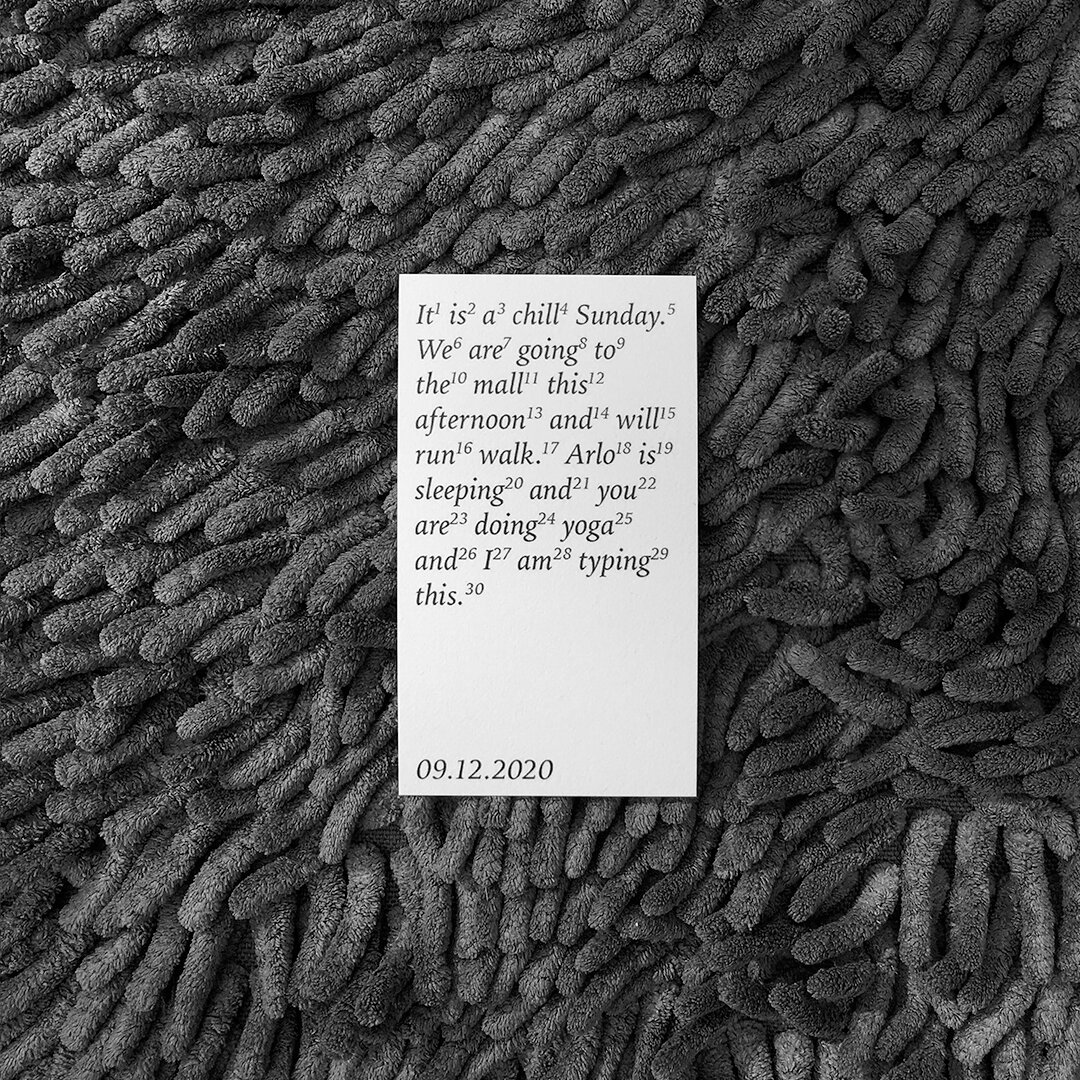 It¹ is² a³ chill⁴ Sunday.⁵
We⁶ are⁷ going⁸ to⁹
the¹⁰ mall¹¹ this¹²
afternoon¹³ and¹⁴ will¹⁵
run¹⁶ walk.¹⁷ Arlo¹⁸ is¹⁹
sleeping²⁰ and²¹ you²²
are²³ doing²⁴ yoga²⁵
and²⁶ I²⁷ am²⁸ typing²⁹
this.³⁰
09.12.2020